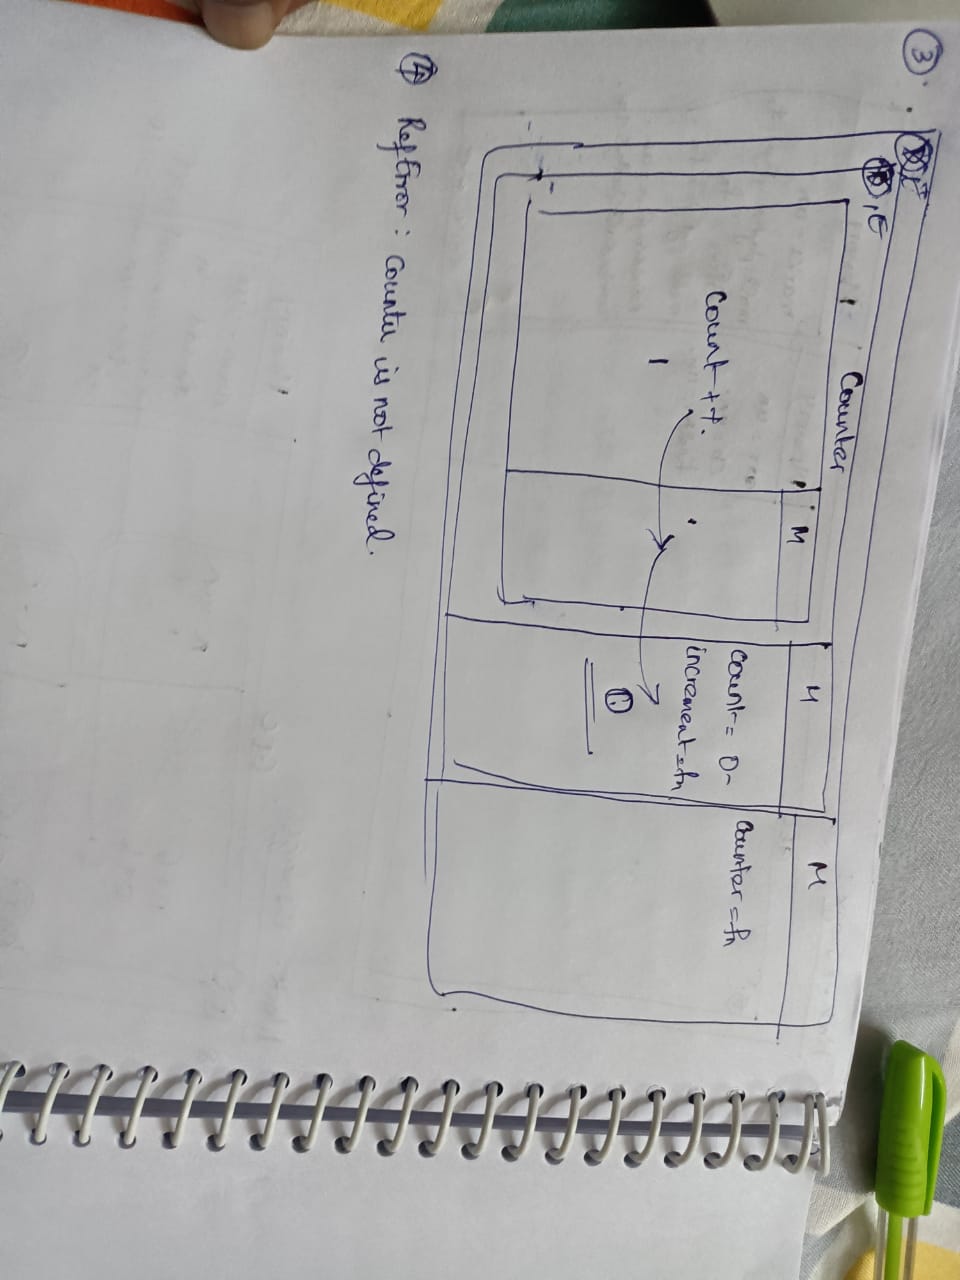 ③.
, E
Counter
M
M
M
Count ++.
count = 0
increment = fn
counter = fn
1
①
④ RefError : Counter is not defined.